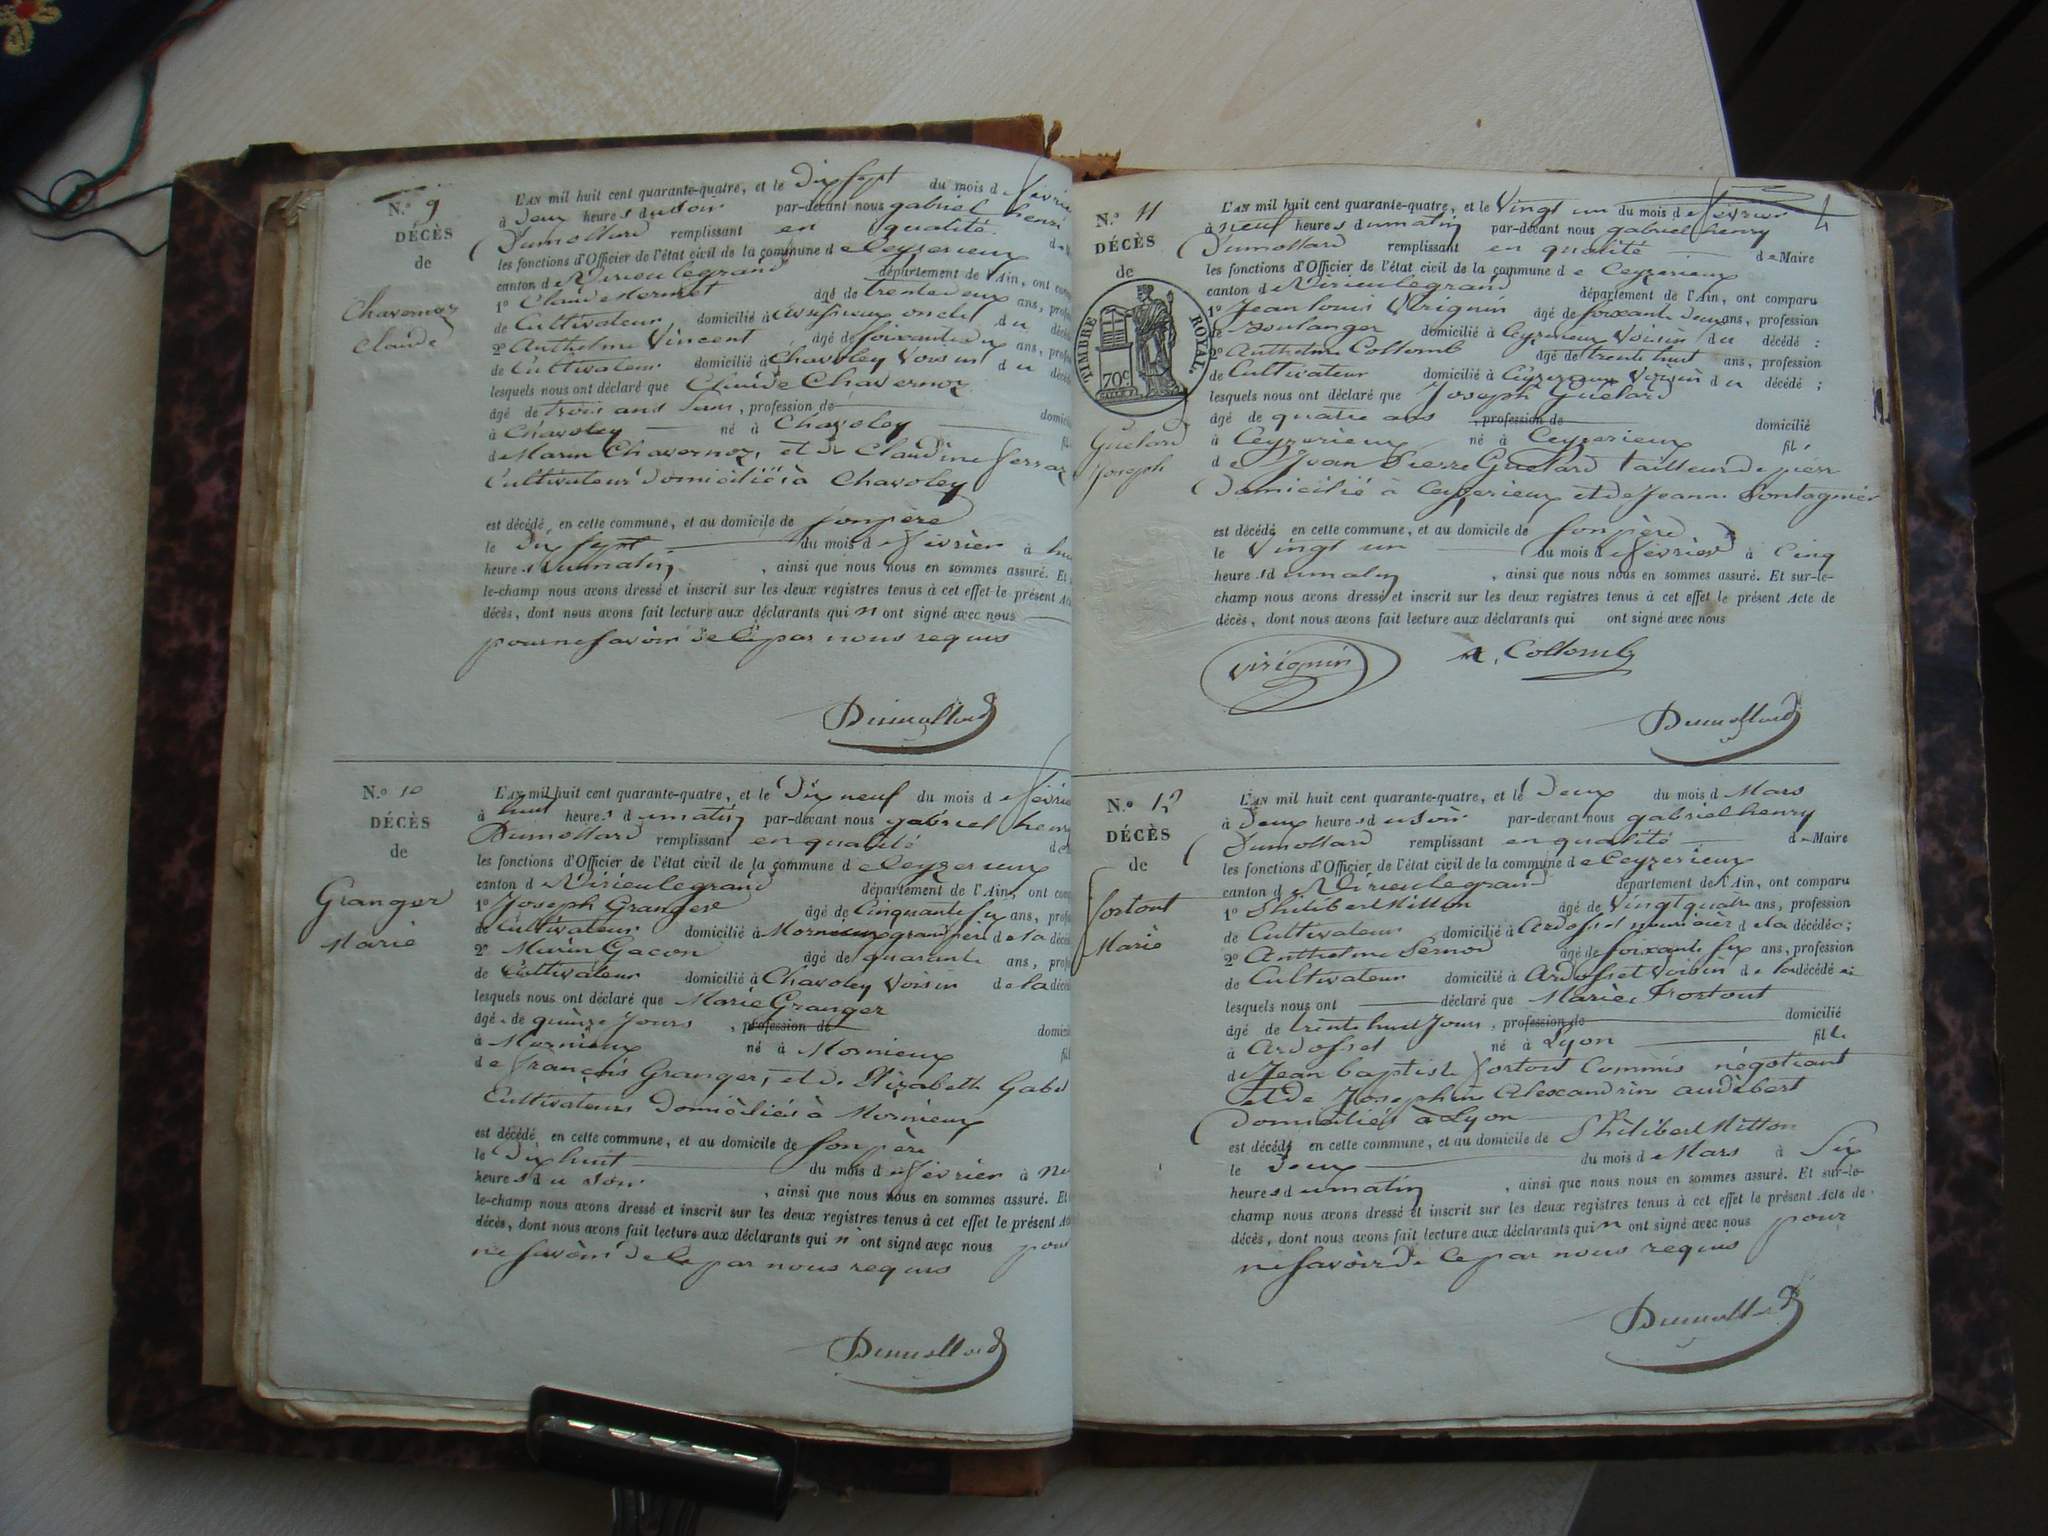 N.o 9
DÉCÈS
de
Chavernoz
Claude
L'AN mil huit cent quarante-quatre, et le Dix sept du mois d février
à deux heures du soir par-devant nous gabriel henri
Dumollard remplissant en qualité
les fonctions d'Officier de l'état civil de la commune de Ceyzerieux
canton de Virieulegrand département de l'Ain, ont
1o Claude agé de trente deux ans,
de Cultivateur domicilié à oncle du
2o Anthelme Vincent agé de soixante ans,
de Cultivateur domicilié à Chavoley Voisin du
lesquels nous ont déclaré que Claude Chavernoz
âgé de trois ans, profession de
à Chavoley né à Chavoley
de Marin Chavernoz, et de Claudine
Cultivateurs Domiciliés à Chavoley
est décédé en cette commune, et au domicile de son père
le Dix sept du mois de février à
heures du matin, ainsi que nous nous en sommes assuré. Et
le-champ nous avons dressé et inscrit sur les deux registres tenus à cet effet le présent Acte
décès, dont nous avons fait lecture aux déclarants qui n ont signé avec nous
pour ne savoir de ce par nous requis
Dumollard
N.o 10
DÉCÈS
de
Granger
Marie
L'AN mil huit cent quarante-quatre, et le Dix neuf du mois de février
à huit heures du matin par-devant nous gabriel henry
Dumollard remplissant en qualité
les fonctions d'Officier de l'état civil de la commune de Ceyzerieux
canton de Virieulegrand département de l'Ain, ont
1o Joseph Granger âgé de Cinquante six ans,
de Cultivateur domicilié à Mornieux grand père de la
2o Marin Gacon âgé de quarante ans,
de Cultivateur domicilié à Chavoley Voisin de la
lesquels nous ont déclaré que Marie Granger
âgé de quinze jours, profession de
à Mornieux né à Mornieux
de françois Granger, et de Elizabeth
Cultivateurs Domiciliés à Mornieux
est décédé en cette commune, et au domicile de son père
le Dix huit du mois de février à
heures du soir, ainsi que nous nous en sommes assuré. Et
le-champ nous avons dressé et inscrit sur les deux registres tenus à cet effet le présent
décès, dont nous avons fait lecture aux déclarants qui n ont signé avec nous pour
ne savoir de ce par nous requis
Dumollard
4
N.o 11
DÉCÈS
de
TIMBRE ROYAL.
70c
Guelard
Joseph
L'AN mil huit cent quarante-quatre, et le Vingt un du mois de février
à neuf heures du matin par-devant nous gabriel henry
Dumollard remplissant en qualité de Maire
les fonctions d'Officier de l'état civil de la commune de Ceyzerieux
canton de Virieulegrand département de l'Ain, ont comparu
1o Jean louis Virignin agé de soixante deux ans, profession
de Boulanger domicilié à Ceyzerieux Voisin du décédé :
2o Anthelme Collomb âgé de trente huit ans, profession
de Cultivateur domicilié à Ceyzerieux Voisin du décédé ;
lesquels nous ont déclaré que Joseph Guelard
âgé de quatre ans, profession de domicilié
à Ceyzerieux né à Ceyzerieux fils
de Jean Pierre Guelard tailleur de pierr
Domicilié à Ceyzerieux et de Jeanne
est décédé en cette commune, et au domicile de son père
le Vingt un du mois de février à Cinq
heures du matin, ainsi que nous nous en sommes assuré. Et sur-le-
champ nous avons dressé et inscrit sur les deux registres tenus à cet effet le présent Acte de
décès, dont nous avons fait lecture aux déclarants qui ont signé avec nous
Virignin A. Collomb
Dumollard
N.o 12
DÉCÈS
de
Fortout
Marie
L'AN mil huit cent quarante-quatre, et le Deux du mois d Mars
à Deux heures du soir par-devant nous gabriel henry
Dumollard remplissant en qualité de Maire
les fonctions d'Officier de l'état civil de la commune de Ceyzerieux
canton de Virieulegrand département de l'Ain, ont comparu
1o Philibert Mitton âgé de Vingt quatre ans, profession
de Cultivateur domicilié à Ardosset de la décédée ;
2o Anthelme Pernod âgé de soixante six ans, profession
de Cultivateur domicilié à Ardosset Voisin de la décédée
lesquels nous ont déclaré que Marie Fortout
âgé de trente huit Jours, profession de domicilié
à Ardosset né à Lyon fille
de Jean baptiste Fortout Commis négotiant
et de Josephine Alexandrine audibert
Domiciliés à Lyon
est décédé en cette commune, et au domicile de Philibert Mitton
le Deux du mois de Mars à Six
heures du matin, ainsi que nous nous en sommes assuré. Et sur-le-
champ nous avons dressé et inscrit sur les deux registres tenus à cet effet le présent Acte de
décès, dont nous avons fait lecture aux déclarants qui n ont signé avec nous pour
ne savoir de ce par nous requis
Dumollard